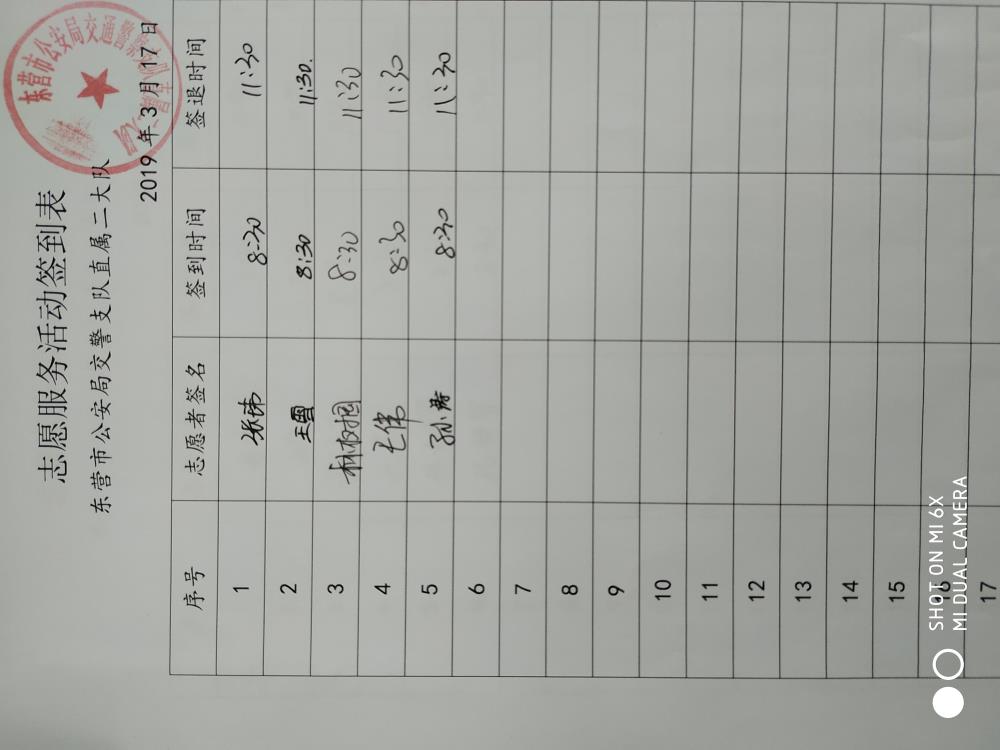 志愿服务活动签到表
东营市公安局交警支队直属二大队
2019 年 3 月 17 日
东营市公安局交通警察支队直属二大队
序号 志愿者签名 签到时间 签退时间
1 张沛 8:30 11:30
2 王国 8:30 11:30.
3 8:30 11:30
4 王伟 8:30 11:30
5 孙 8:30 11:30
6
7
8
9
10
11
12
13
14
15
16
17
SHOT ON MI 6X
MI DUAL CAMERA